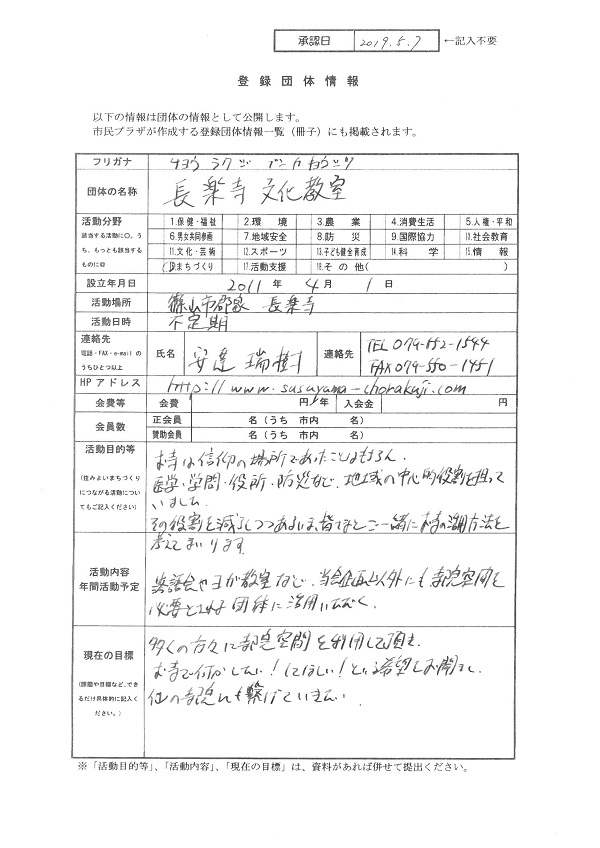 承認日 2019.5.7 ←記入不要
登録団体情報
以下の情報は団体の情報として公開します。
市民プラザが作成する登録団体情報一覧（冊子）にも掲載されます。
フリガナ チョウ ラクジ ブンカ キョウシツ
団体の名称 長楽寺 文化教室
活動分野
該当する活動に○。うち、もっとも該当するものに◎
1.保健・福祉 2.環境 3.農業 4.消費生活 5.人権・平和
6.男女共同参画 7.地域安全 8.防災 9.国際協力 10.社会教育
11.文化・芸術 12.スポーツ 13.子ども健全育成 14.科学 15.情報
まちづくり 17.活動支援 18.その他( )
設立年月日 2011年 4月 1日
活動場所 篠山市郡家 長楽寺
活動日時 不定期
連絡先
電話・FAX・e-mailのうちひとつ以上
氏名 安達 瑞樹 連絡先 TEL 079-552-1544
FAX 079-550-1451
HPアドレス http://www.sasayama-chorakuji.com
会費等 会費 円/年 入会金 円
会員数 正会員 名（うち 市内 名）
賛助会員 名（うち 市内 名）
活動目的等
(住みよいまちづくりにつながる活動についてもご記入ください)
お寺は信仰の場所であったことはもちろん、
医学・学問・役所・防災など、地域の中心的役割を担って
いました。
その役割を減らしつつあるいま、皆さまとご一緒にお寺の活用方法を
考えてまいります。
活動内容
年間活動予定
落語会やヨガ教室など、当会企画以外にも寺院空間を
必要とされる団体に活用いただく。
現在の目標
(課題や目標など、できるだけ具体的に記入ください。)
多くの方々に寺院空間を利用して頂き、
お寺で何かしたい！してほしい！という希望をお聞きし、
他の寺院にも繋げていきたい
※「活動目的等」、「活動内容」、「現在の目標」は、資料があれば併せて提出ください。